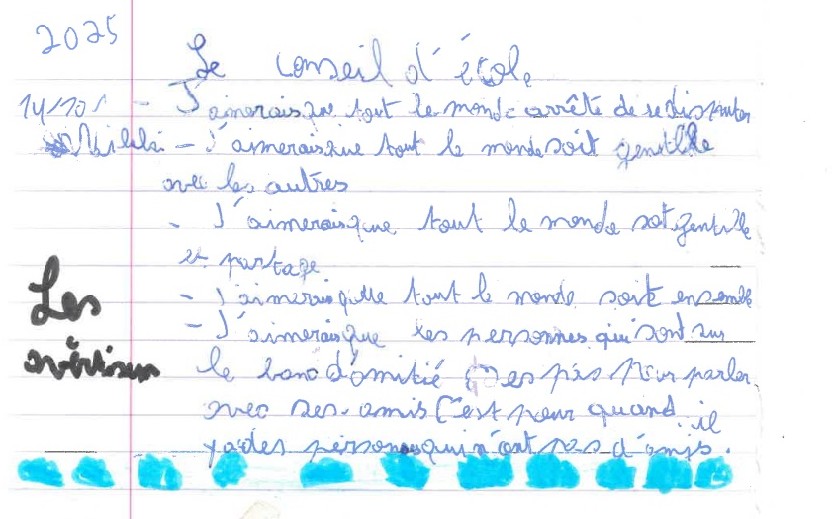 2025
Le conseil d'école
14/10/ - J'aimerais que tout le monde arrête de se disputer
- J'aimerais que tout le monde soit gentille
avec les autres
- J'aimerais que tout le monde soit gentille
et partage
- J'aimerais qu'elle tout le monde soit ensemble
- J'aimerais que les personnes qui sont sur
le banc d'amitié es pas pour parler
avec ses amis C'est pour quand il
y a des personnes qui n'ont pas d'amis.
Les